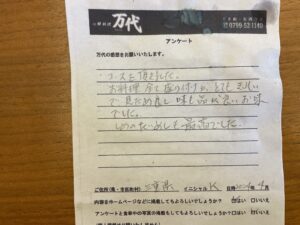 万代
0799-52-1140
アンケート
万代の感想をお聞かせいたします。
コースを頂きました。
お料理 全て 盛り付けが とても きれい
で 見ため良し 味も品が良いお味
でした。
しめのたいめしも最高でした。
ご住所(県・市区町村) 三重県 イニシャル K 日時 4月
内容をホームページなどに掲載してもよろしいでしょうか? はい □いいえ
アンケートと食事中の写真の掲載もしてもよろしいでしょうか? □はい □いいえ